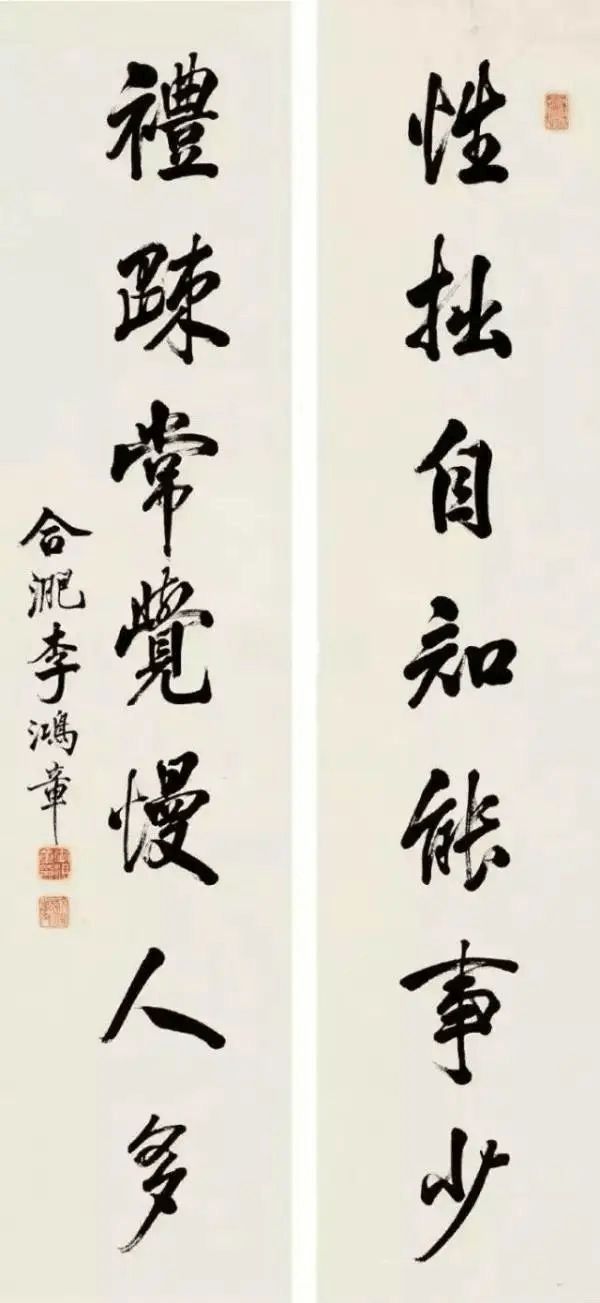 性拙自知能事少
禮疎常覺慢人多
合淝李鴻章